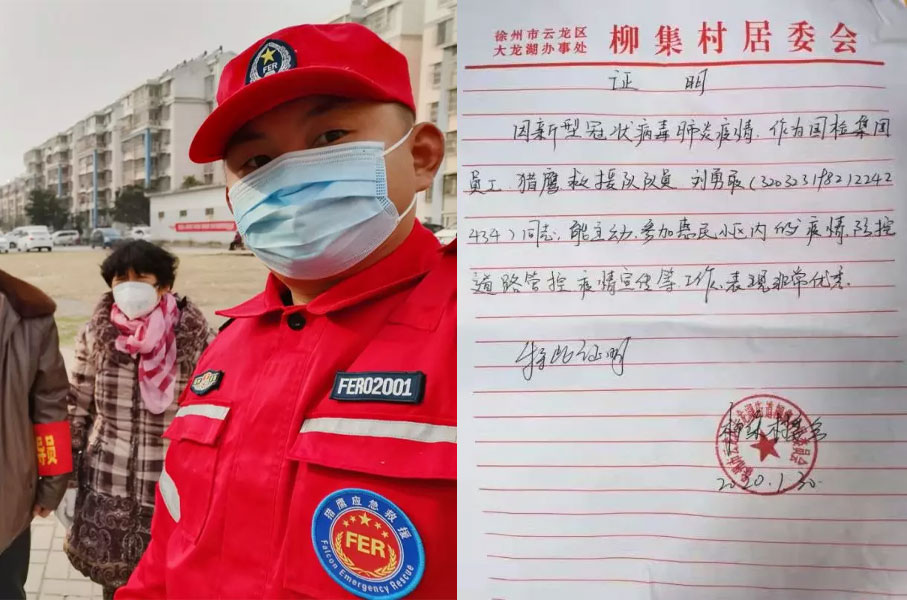 FER
FER02001
猎鹰应急救援
FER
Falcon Emergency Rescue
导员
徐州市云龙区
大龙湖办事处
柳集村居委会
证 明
因新型冠状病毒肺炎疫情，作为国检集团
员工，猎鹰救援队队员 刘勇敢（32032319821224
4341）同志，能主动，参加惠民小区内的疫情防控
道路管控 疫情宣传等工作，表现非常优秀。
特此证明
2020.1.30